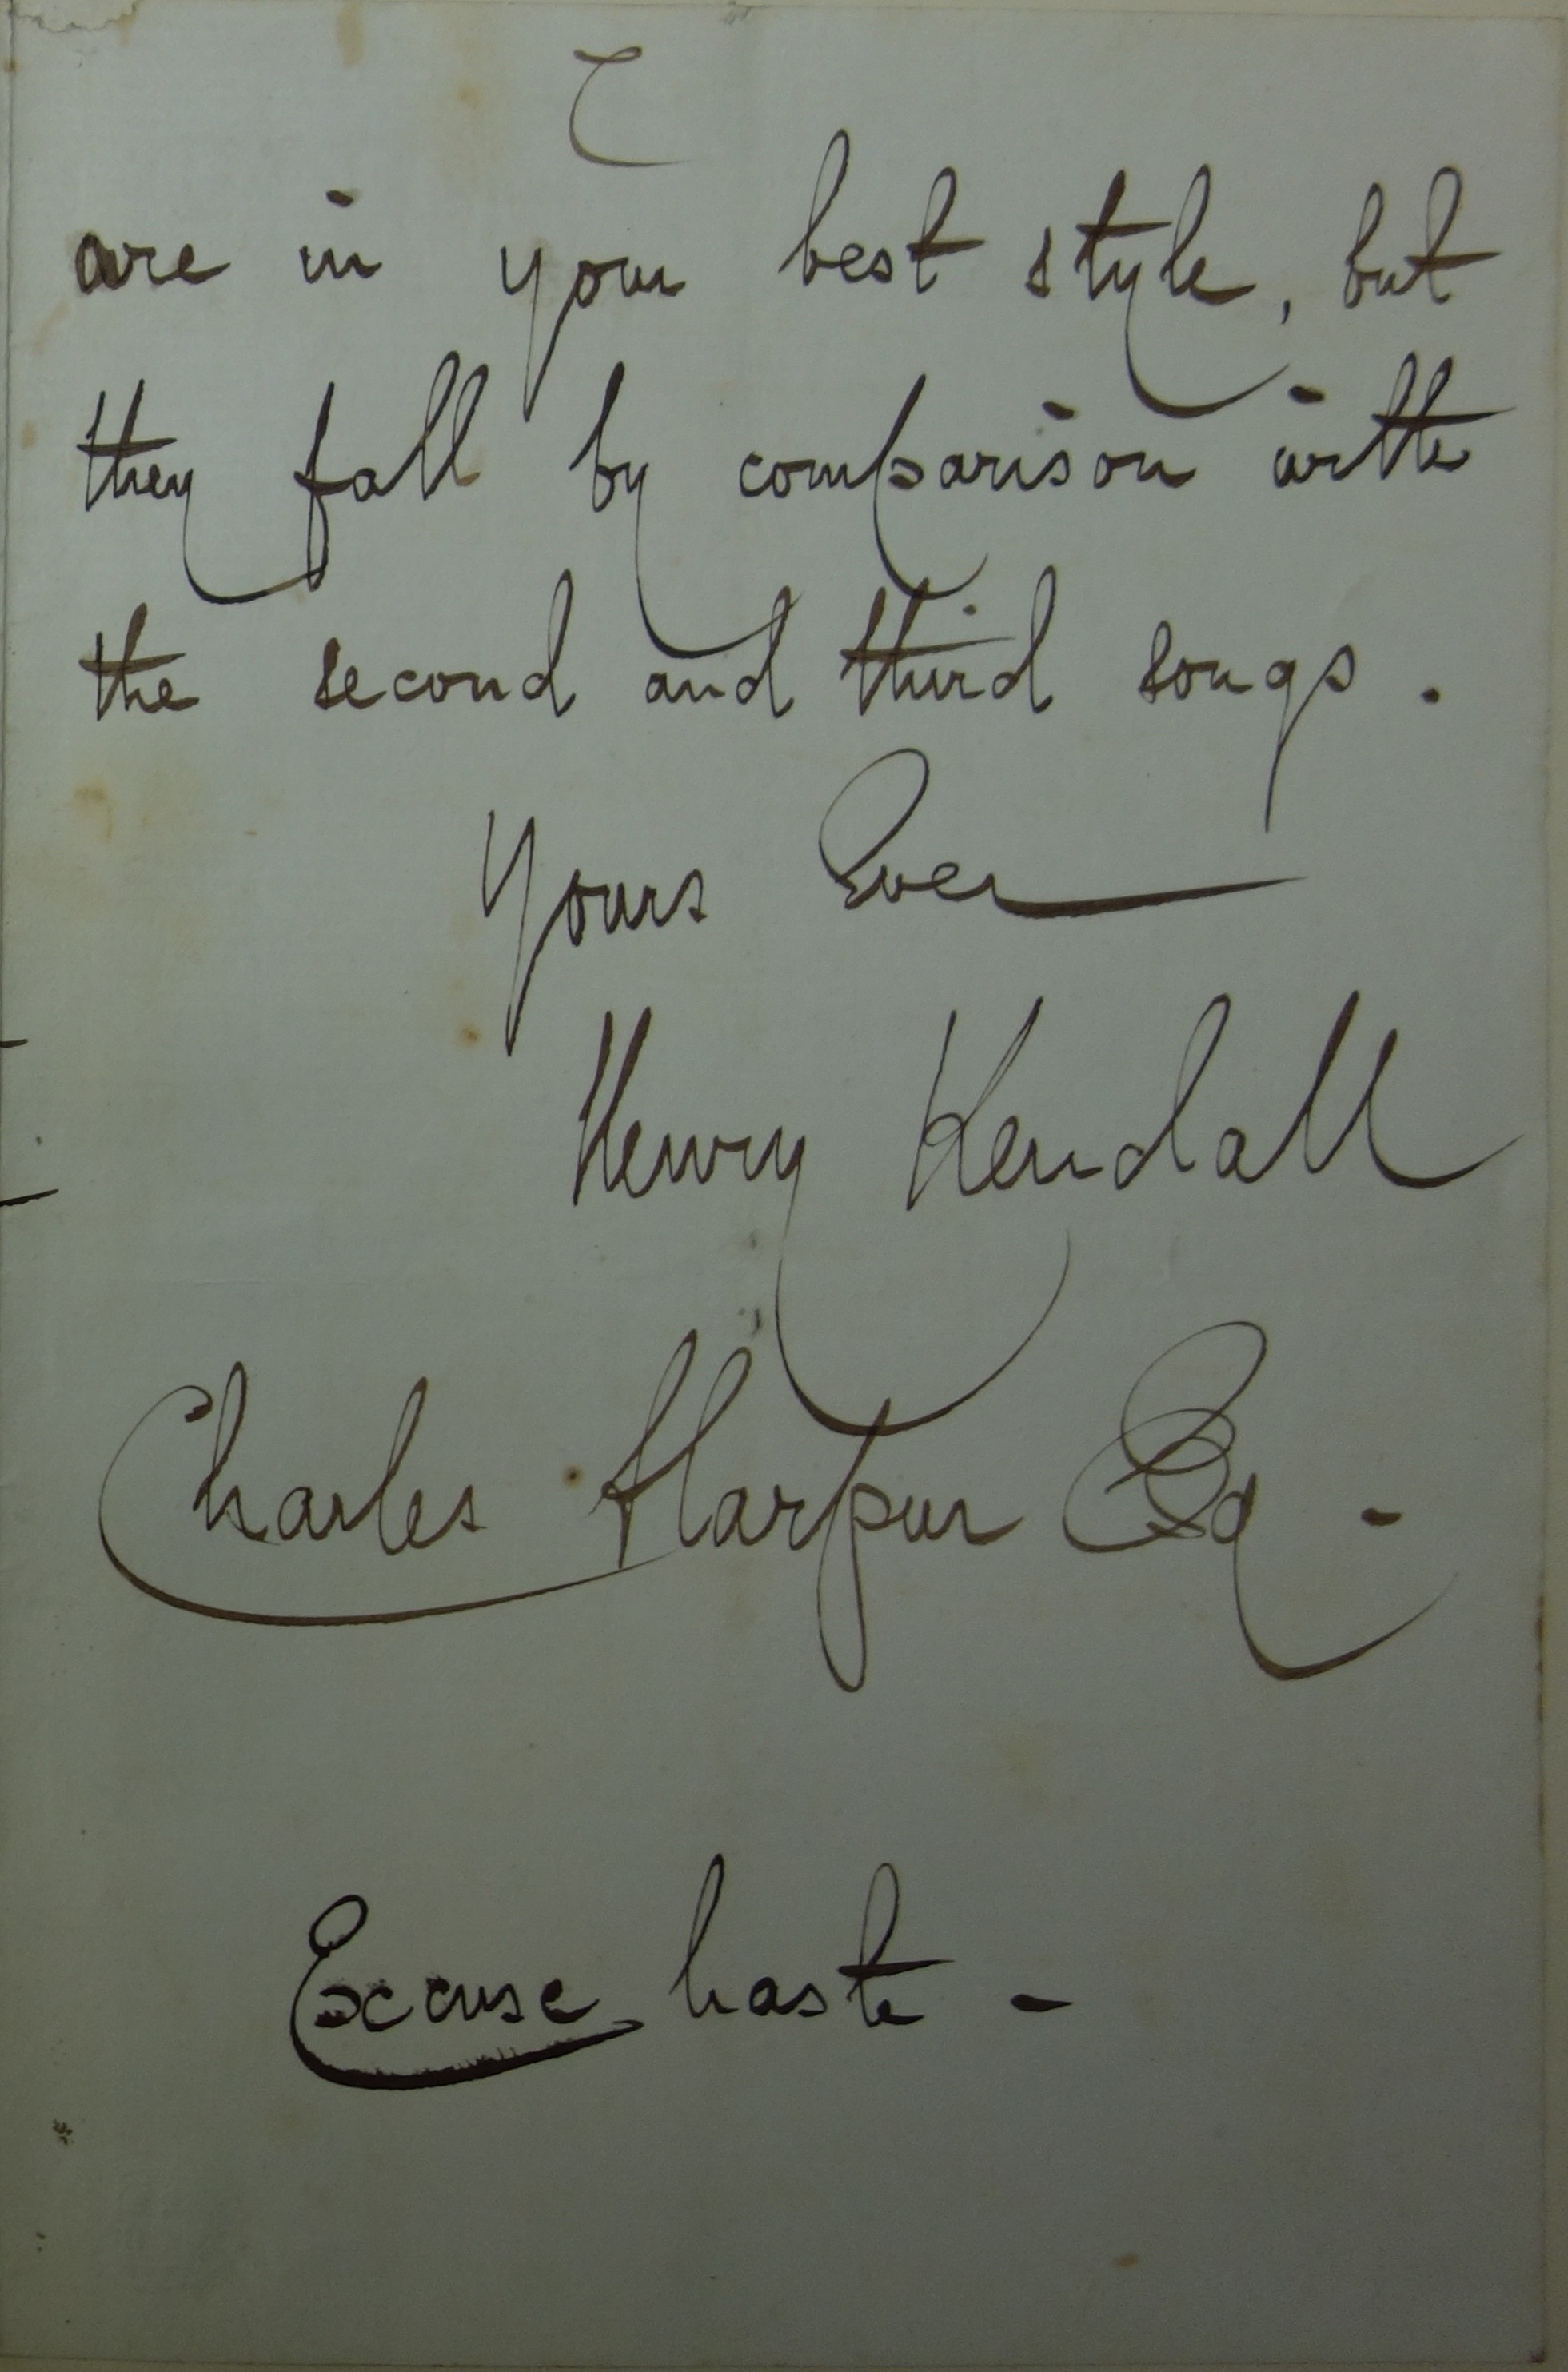 are in your best style, but
they fall by comparison with
the second and third songs.
Yours Ever
Henry Kendall
Charles Harpur Esq -
Excuse haste -